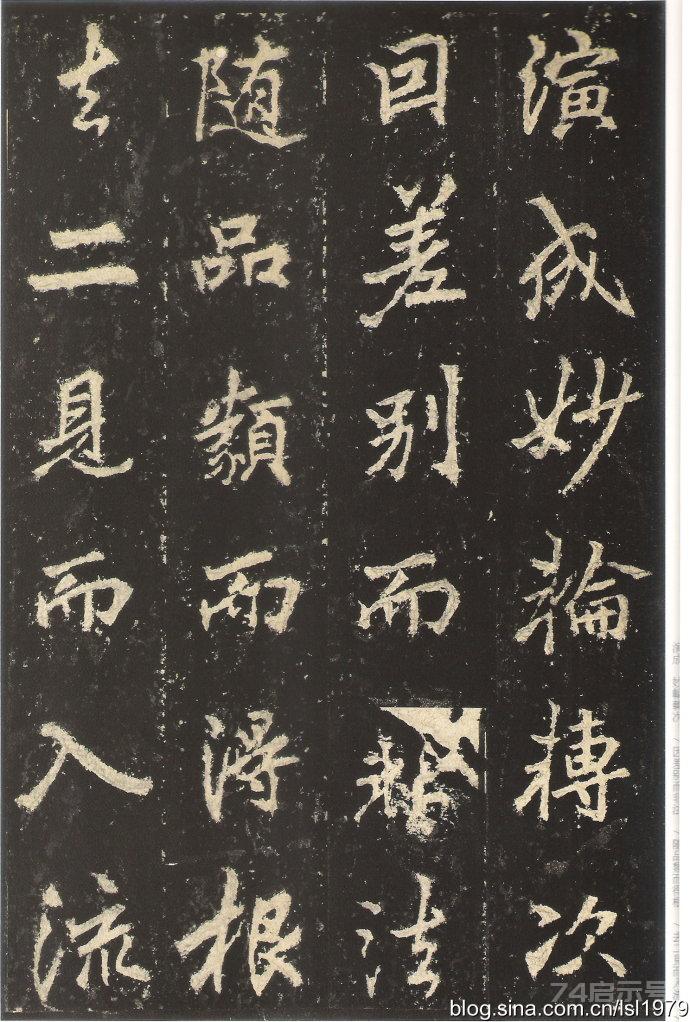 演成妙輪轉次
回差別而法
随品類而得根
去二見而入流
74启示号
blog.sina.com.cn/lsl1979